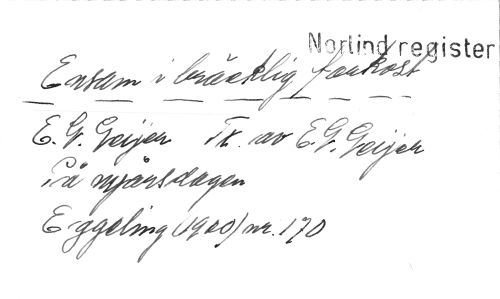 Norlind register
Ensam i bräcklig farkost
E. G. Geijer Tk. av E. G. Geijer
På nyårsdagen
Eggeling (1900) nr. 170